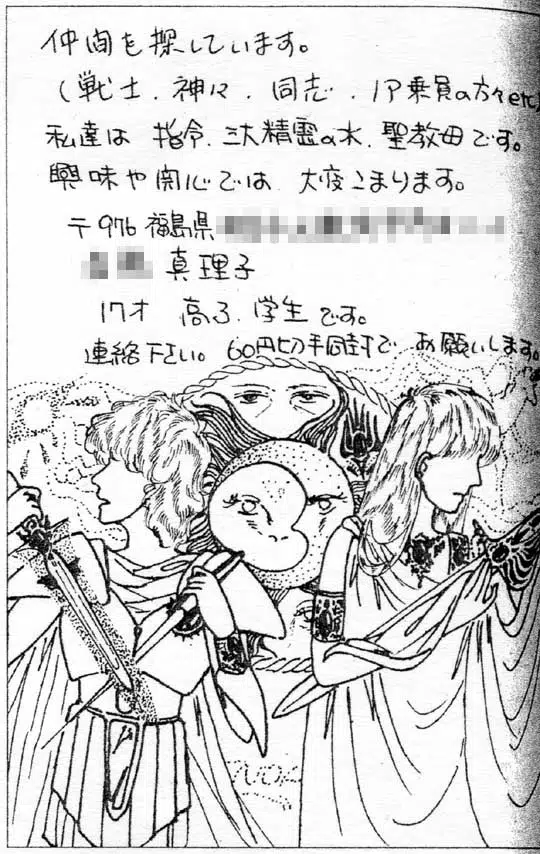 仲間を探しています。
(戦士、神々、同志、ノア乗員の方々etc)
私達は 指令、三大精霊の水、聖教母です。
興味や関心では 大変こまります。
〒976 福島県
真理子
17才 高3、学生です。
連絡下さい。60円切手同封で お願いします。